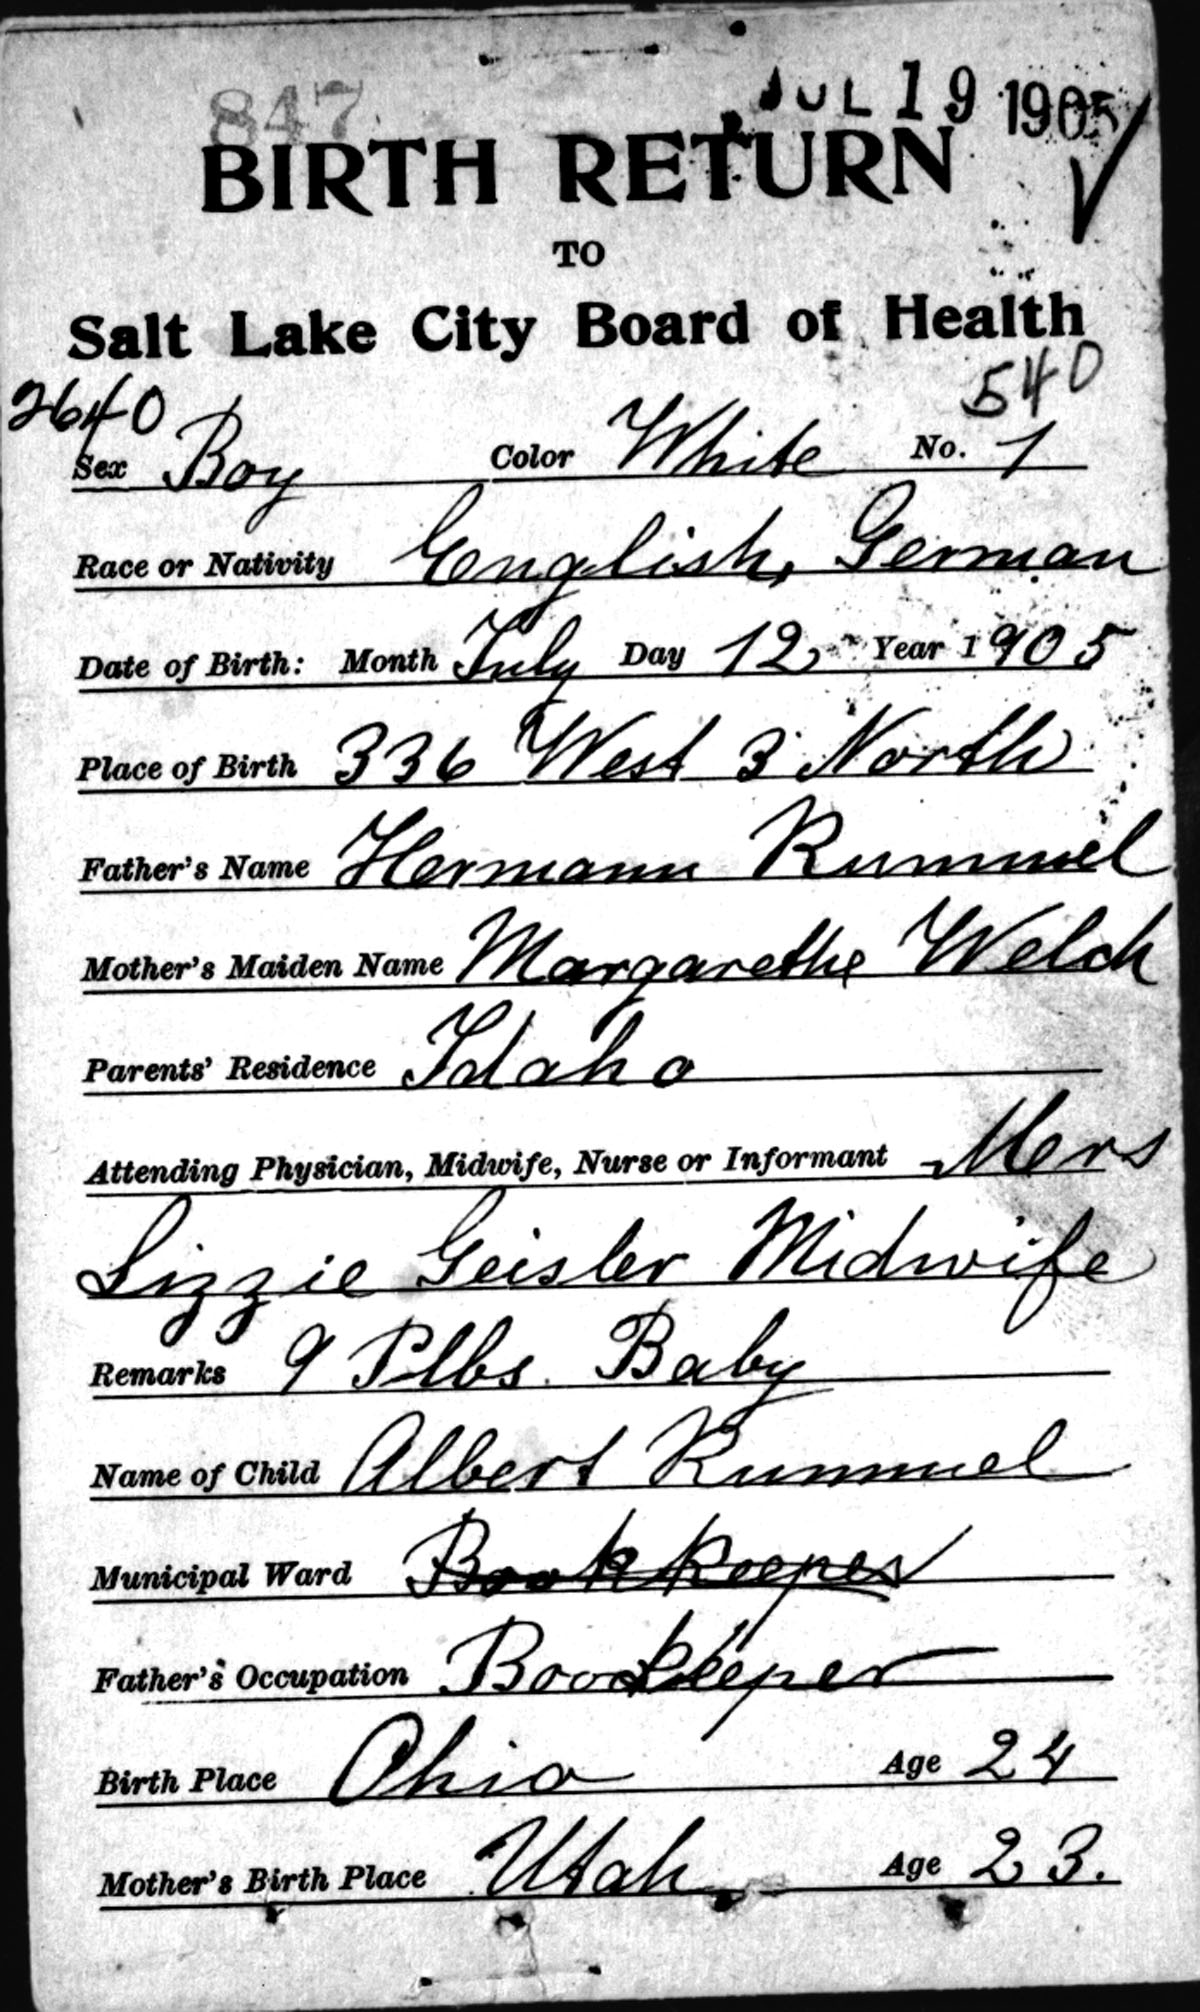 847 JUL 19 1905
BIRTH RETURN
TO
Salt Lake City Board of Health
2640 540
Sex Boy Color White No. 1
Race or Nativity English, German
Date of Birth: Month July Day 12 Year 1905
Place of Birth 336 West 3 North
Father's Name Hermann Rummel
Mother's Maiden Name Margarethe Welch
Parents' Residence Idaho
Attending Physician, Midwife, Nurse or Informant Mers
Lizzie Geisler Midwife
Remarks 9 Plbs. Baby
Name of Child Albert Rummel
Municipal Ward Bookkeeper
Father's Occupation Bookkeeper
Birth Place Ohio Age 24
Mother's Birth Place Utah Age 23.